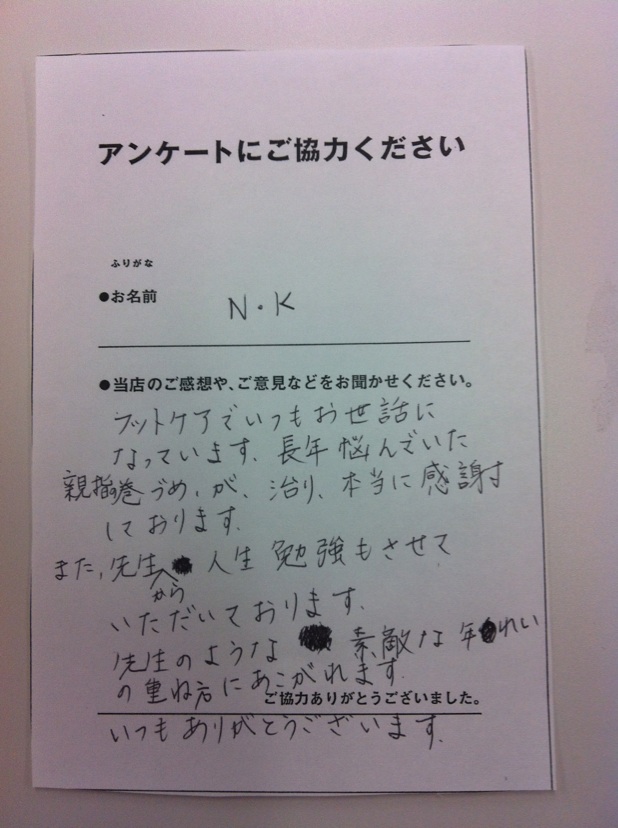 アンケートにご協力ください
ふりがな
●お名前
N・K
●当店のご感想や、ご意見などをお聞かせください。
フットケアでいつもお世話に
なっています。長年悩んでいた
親指の巻づめ、が、治り、本当に感謝
しております。
また、先生から人生勉強もさせて
いただいております。
先生のような素敵な年れい
の重ね方にあこがれます。
ご協力ありがとうございました。
いつもありがとうございます。